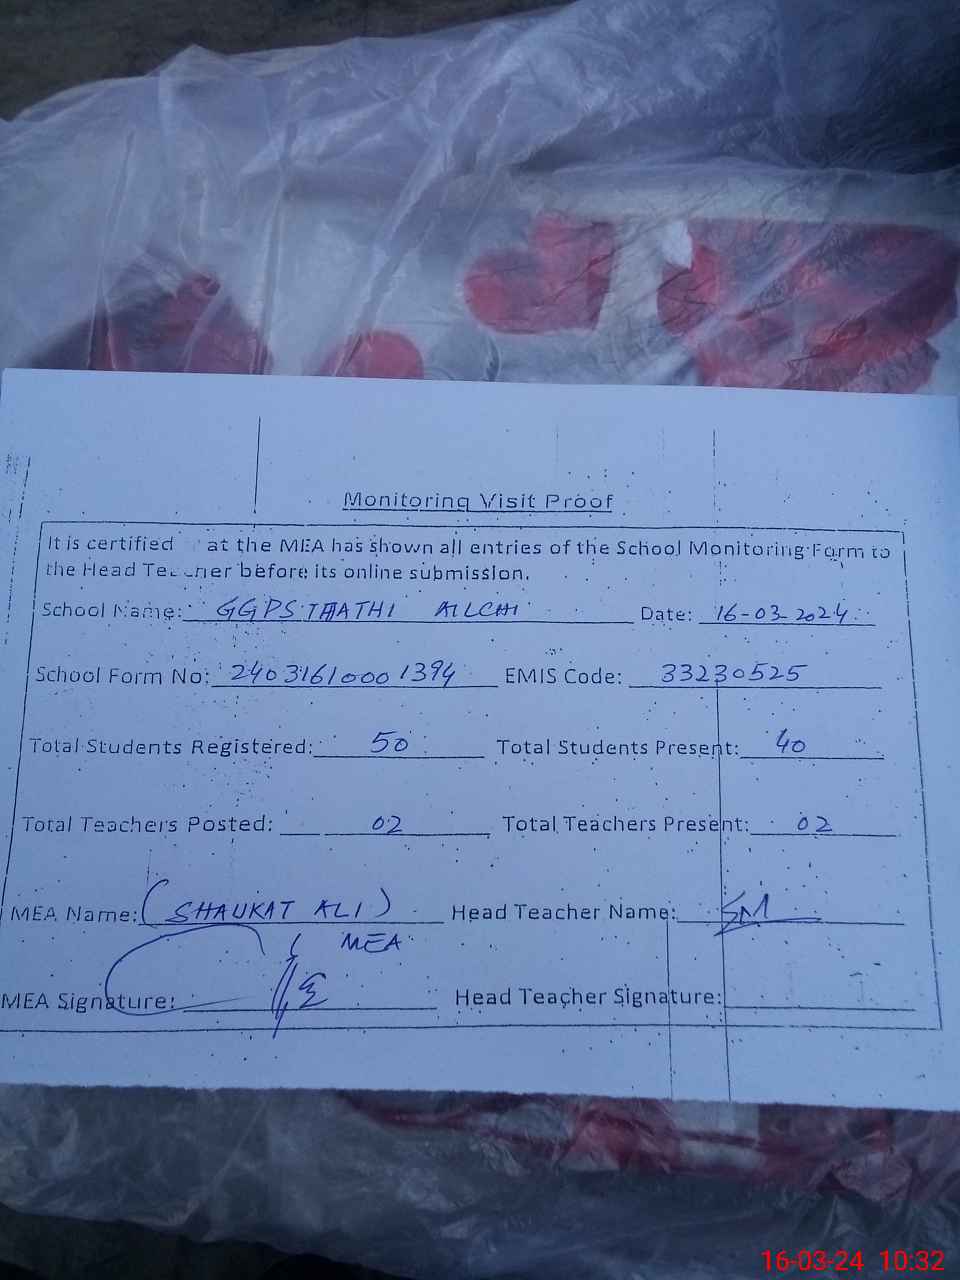 Monitoring Visit Proof
It is certified at the MEA has shown all entries of the School Monitoring Form to
the Head Teacher before its online submission.
School Name: GGPS THATHI Date: 16-03-2024
School Form No: 24031610001394 EMIS Code: 33230525
Total Students Registered: 50 Total Students Present: 40
Total Teachers Posted: 02 Total Teachers Present: 02
MEA Name: (SHAUKAT ALI) Head Teacher Name: SM
MEA
MEA Signature: Head Teacher Signature:
16-03-24 10:32